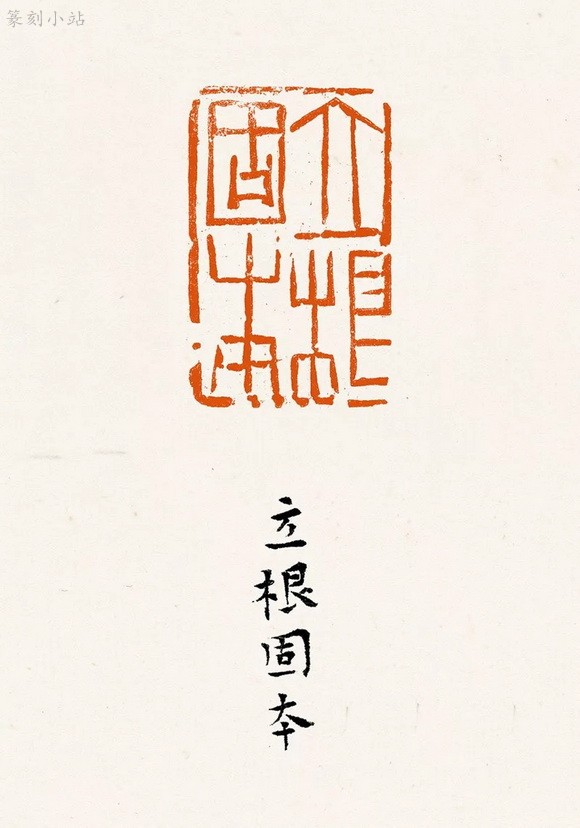 篆刻小站
立根
固本
立根固本